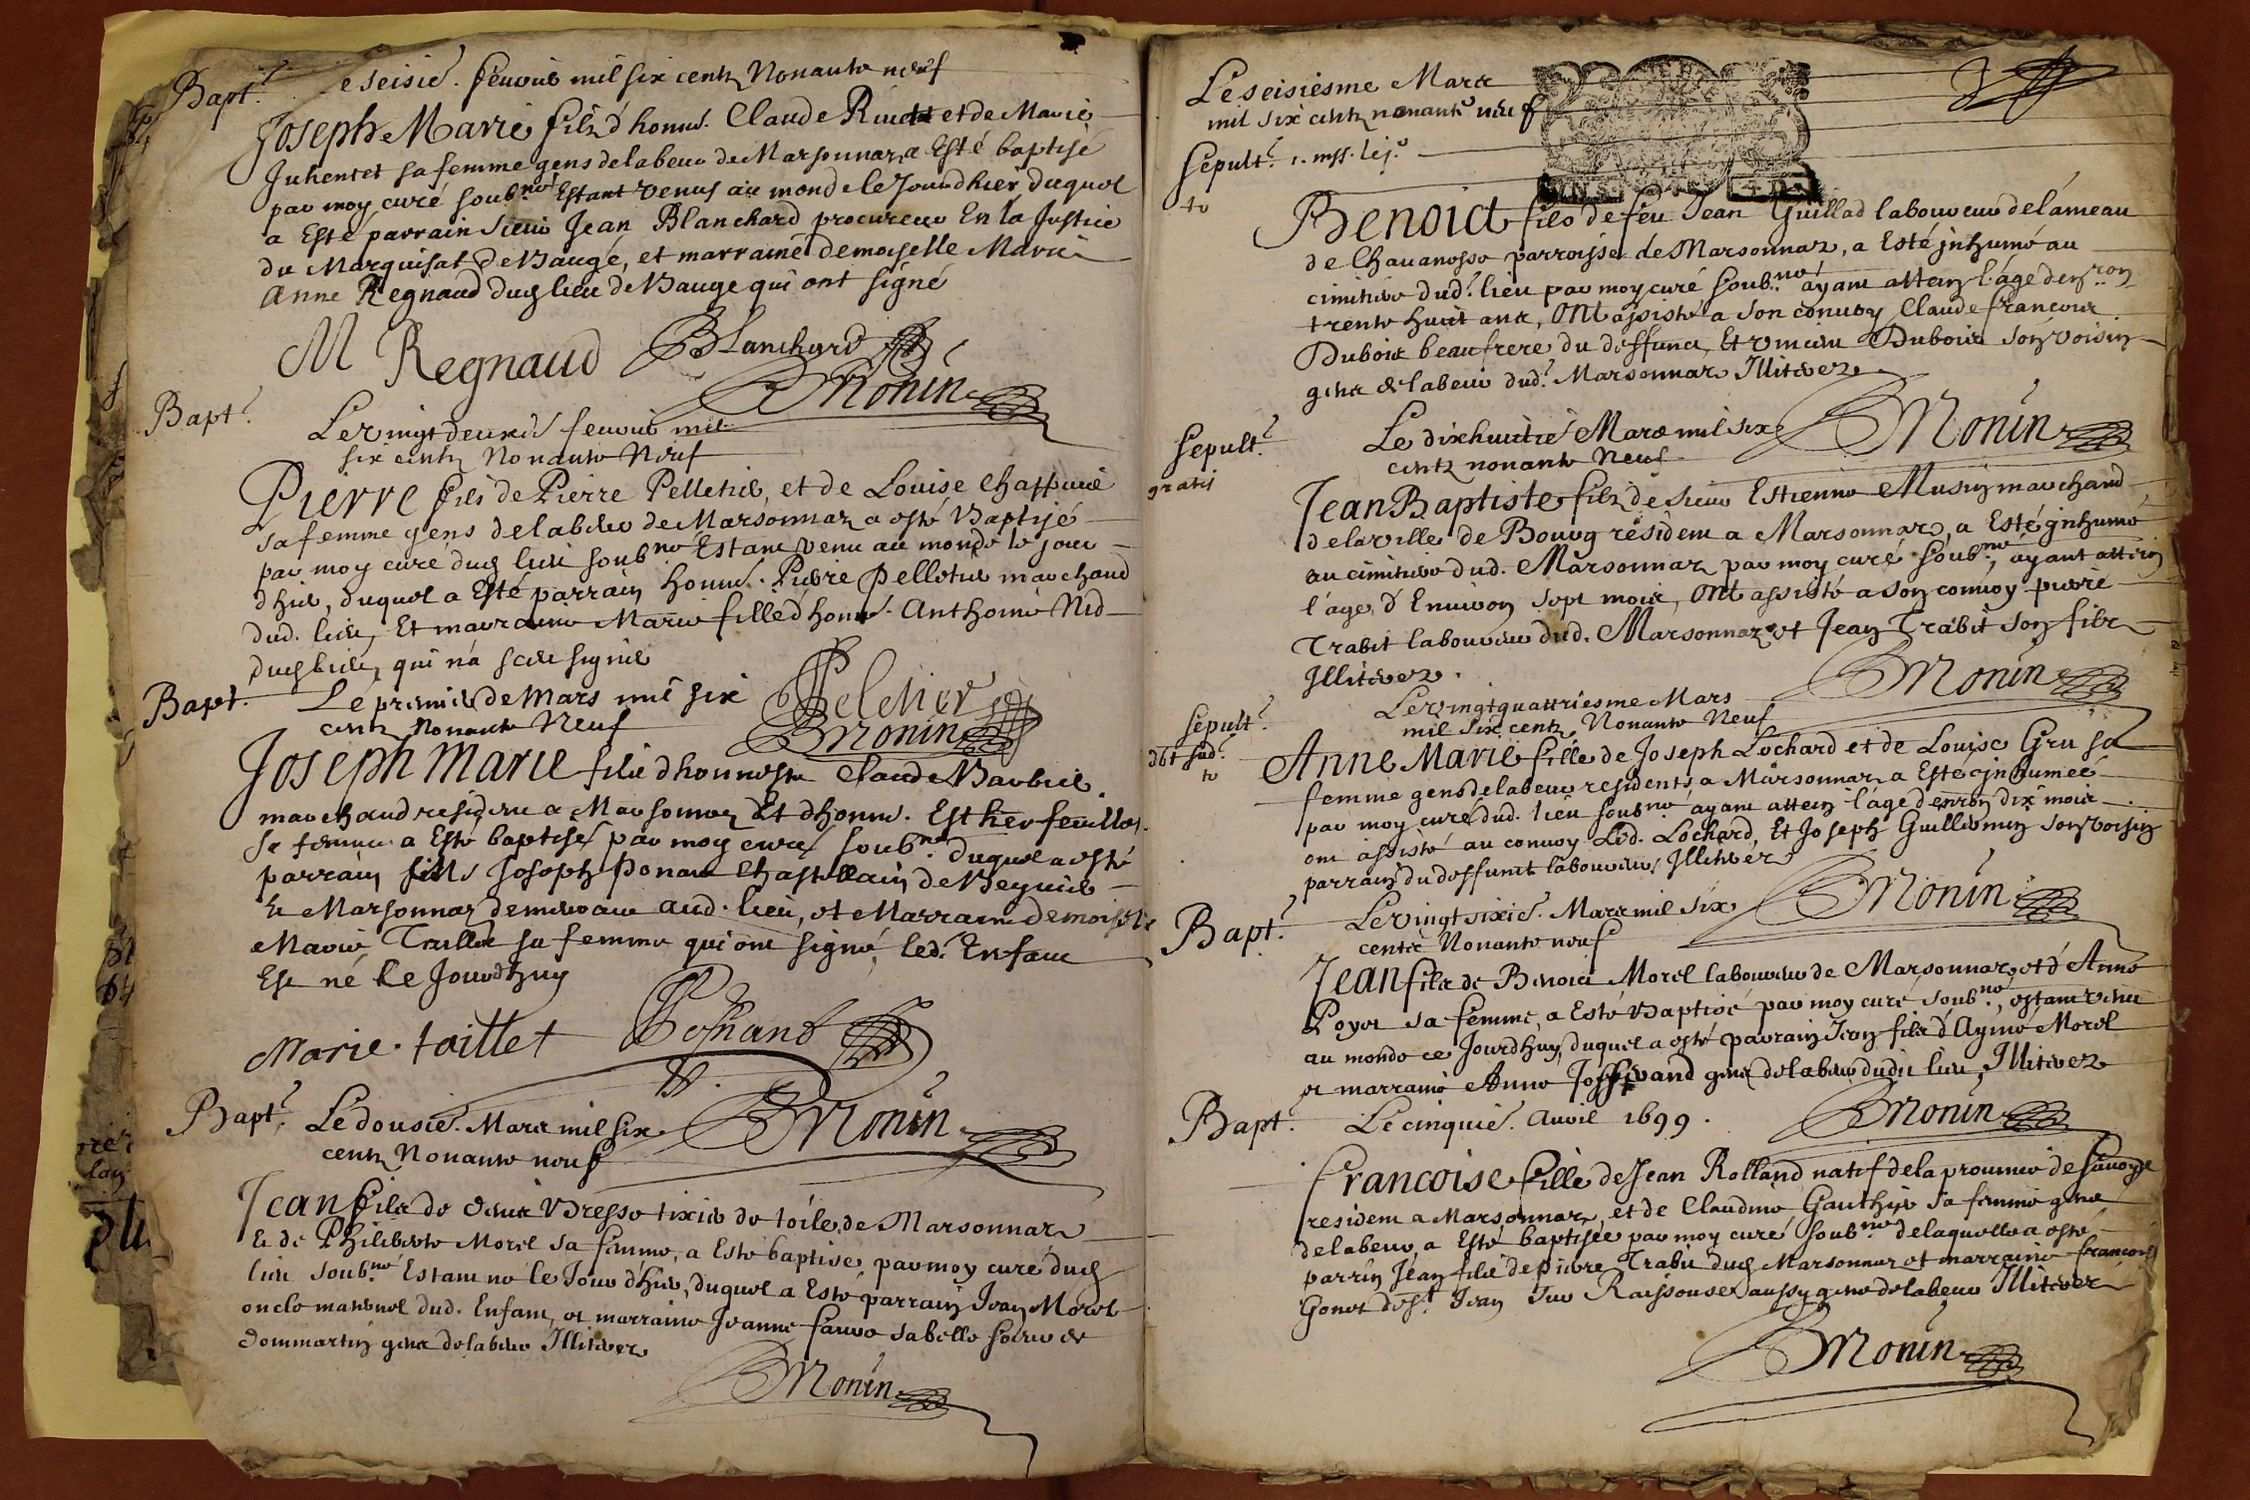 Bapt.
e seisie. feuvrie mil six centz Nonante neuf
Joseph Marie filz d'honne. Claude et de Marie
Juhenet sa femme gens delabeur de Marsonnaz a Esté baptisé
par moy curé soub.né Estant venus au monde le Jourdhier duquel
a Esté parrain Sieur Jean Blanchard procureur En la Justice
du Marquisat de Baugé, et marraine demoiselle Marie
Anne Regnaud dud lieu de Bauge qui ont signé
M Regnaud Blanchard
BMonin
Bapt.
Le vingtdeuxie feuvrie mil
six centz Nonante Neuf
Pierre filz de Pierre Pelletier, et de Louise Chappuie
sa femme gens delabeur de Marsonnaz a esté Baptisé
par moy curé dud lieu soub.né Estant venu au monde le jour
d'hier, duquel a Esté parrain honne. Pierre Pelletier marchand
dud. lieu, Et marraine Marie fille d'honne. Anthoine Nid
dud lieu, qui n'a sceu signer
Pelletier
BMonin
Bapt.
Le premier de Mars mil six
centz Nonante Neuf
Joseph Marie filz d'honneste Claude Barbier
marchand resident a Marsonnaz Et d'honne. Esther feuillet
sa femme a Esté baptisé par moy curé soub.né duquel a esté
parrain Joseph Ponant Chastellain de
Et Marsonnaz demeurant aud. lieu, et Marraine demoiselle
Marie Taillet sa femme qui ont signé, led. Enfant
Est né le Jourdhuy
Marie taillet Ponant
BMonin
Bapt.
Le dousie. Mars mil six
centz Nonante neuf
Jean filz de Denis Bresse tixier de toile, de Marsonnaz
Et de Philiberte Morel sa femme, a Esté baptisé par moy curé dud
lieu soub.né Estant né le Jour d'hier, duquel a Esté parrain Jean Morel
oncle maternel dud. Enfant, et marraine Jeanne favre sa belle soeur de
dommartin gens delabeur Illiterez
BMonin
Le seisiesme Mars
mil six centz nonante neuf
Sepult.
Benoict filz de feu Jean Guillad laboureur delameau
de Chavanosse parroisse de Marsonnaz, a Esté inhumé au
cimitiere dud. lieu par moy curé soub.né ayant attein l'age denron
trente huict ans, Ont assisté a son convoy Claude francois
Dubois beaufrere du deffunct, Et vincent Dubois son voisin
gens delabeur dud. Marsonnaz Illiterez
BMonin
Sepult.
gratis
Le dixhuictie Mars mil six
centz nonante Neuf
Jean Baptiste filz de Sieur Estienne Musin marchand
de la ville de Bourg résident a Marsonnaz, a Esté inhumé
au cimitiere dud. Marsonnaz par moy curé soub.né, ayant attein
l'age d'Environ sept mois, Ont assisté a son convoy pierre
Trabit laboureur dud. Marsonnaz et Jean Trabit son filz
Illiterez.
BMonin
Sepult.
Le vingtquattriesme Mars
mil six centz Nonante Neuf
Anne Marie fille de Joseph Lochard et de Louise Gru sa
femme gens delabeur residents a Marsonnaz a Esté inhumeé
par moy curé dud. lieu soub.né ayant attein l'age denron dix mois
ont assisté au convoy Led. Lochard, Et Joseph Guillermin son voisin
parrain du deffunct laboureur, Illiterez
BMonin
Bapt.
Le vingt sixie. Mars mil six
centz Nonante neuf
Jean filz de Benoict Morel laboureur de Marsonnaz et d'Anne
Poyet sa femme, a Esté Baptisé par moy curé soub.né, estant venu
au monde ce Jourdhuy, duquel a esté parrain Jean filz d'Aymé Morel
et marraine Anne gens delabeur dudit lieu, Illiterez
BMonin
Bapt.
Le cinquie. Avril 1699.
francoise fille de Jean Rolland natif de la province de Savoye
resident a Marsonnaz, et de Claudine Gauthier sa femme gens
delabeur, a Esté baptisée par moy curé soub.né delaquelle a esté
parrin Jean filz de pierre Trabit dud Marsonnaz et marraine francoise
Gonet de St Jean Sur Raissouse aussy gens delabeur Illiterez
BMonin